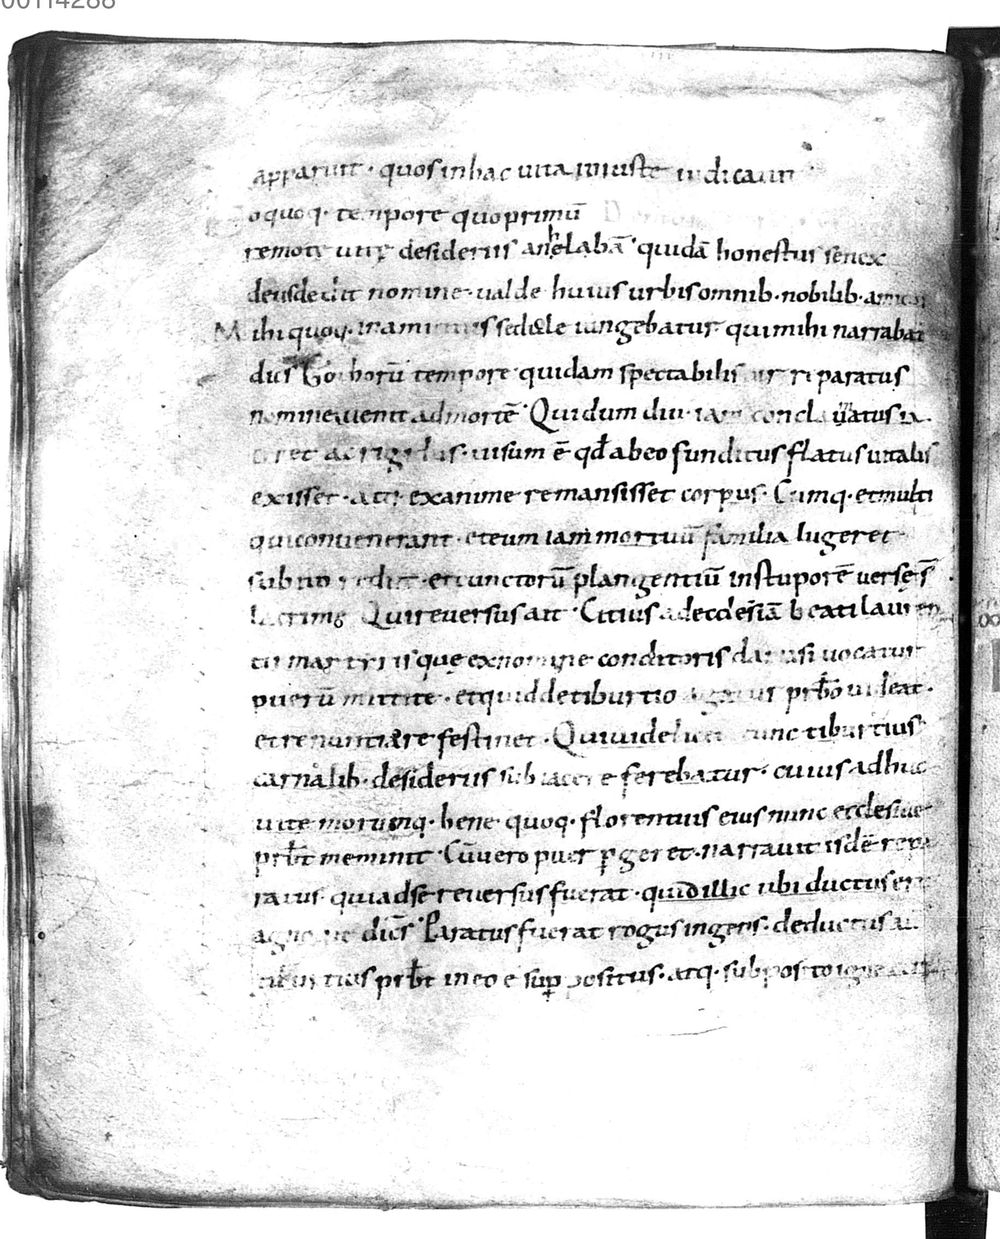 00114288
apparuit · quos in hac uita iniuste iudicauit
eo quoq· tempore quo primū
remotę uitę desideriis anhelabā · quidā honestus senex
deusdedit nomine · ualde huius urbis omnib· nobilib· amicus
Mihi quoq· in amicitiis sedule iungebatur qui mihi narrabat
dicens Gothorū tempore quidam spectabilis uir reparatus
nomine uenit ad mortē · Qui dum diu iam
·uisum ē qd̄ ab eo funditus flatus uitalis
exisset · atq· exanime remansisset corpus · Cumq· et multi
qui conuenerant · et eum iam mortuū familia lugeret
subito rediit · et cunctorū plangentiū in stuporē uersę s̄
lacrimę Qui reuersus ait · Citius ad ecclesiā beati lauren
tii martiris quę ex nomine conditoris damasi uocatur
puerū mittite · et quid de tiburtio agatur prb̄o uideat ·
et renuntiare festinet · Qui uidelicet tunc tiburtius
carnalib· desideriis subiacere ferebatur · cuius adhuc
uitę morumq· bene quoq· florentius eius nunc ecclesiae
prb̄t meminit · Cū uero puer ꝑgeret · narrauit isdē repa
ratus quia ad se reuersus fuerat · quid illic ubi ductus erat
agnouit dicēs Paratus fuerat rogus ingens · deductus au
tiburtius prb̄t in eo ē suꝑpositus · atq· subposito igne